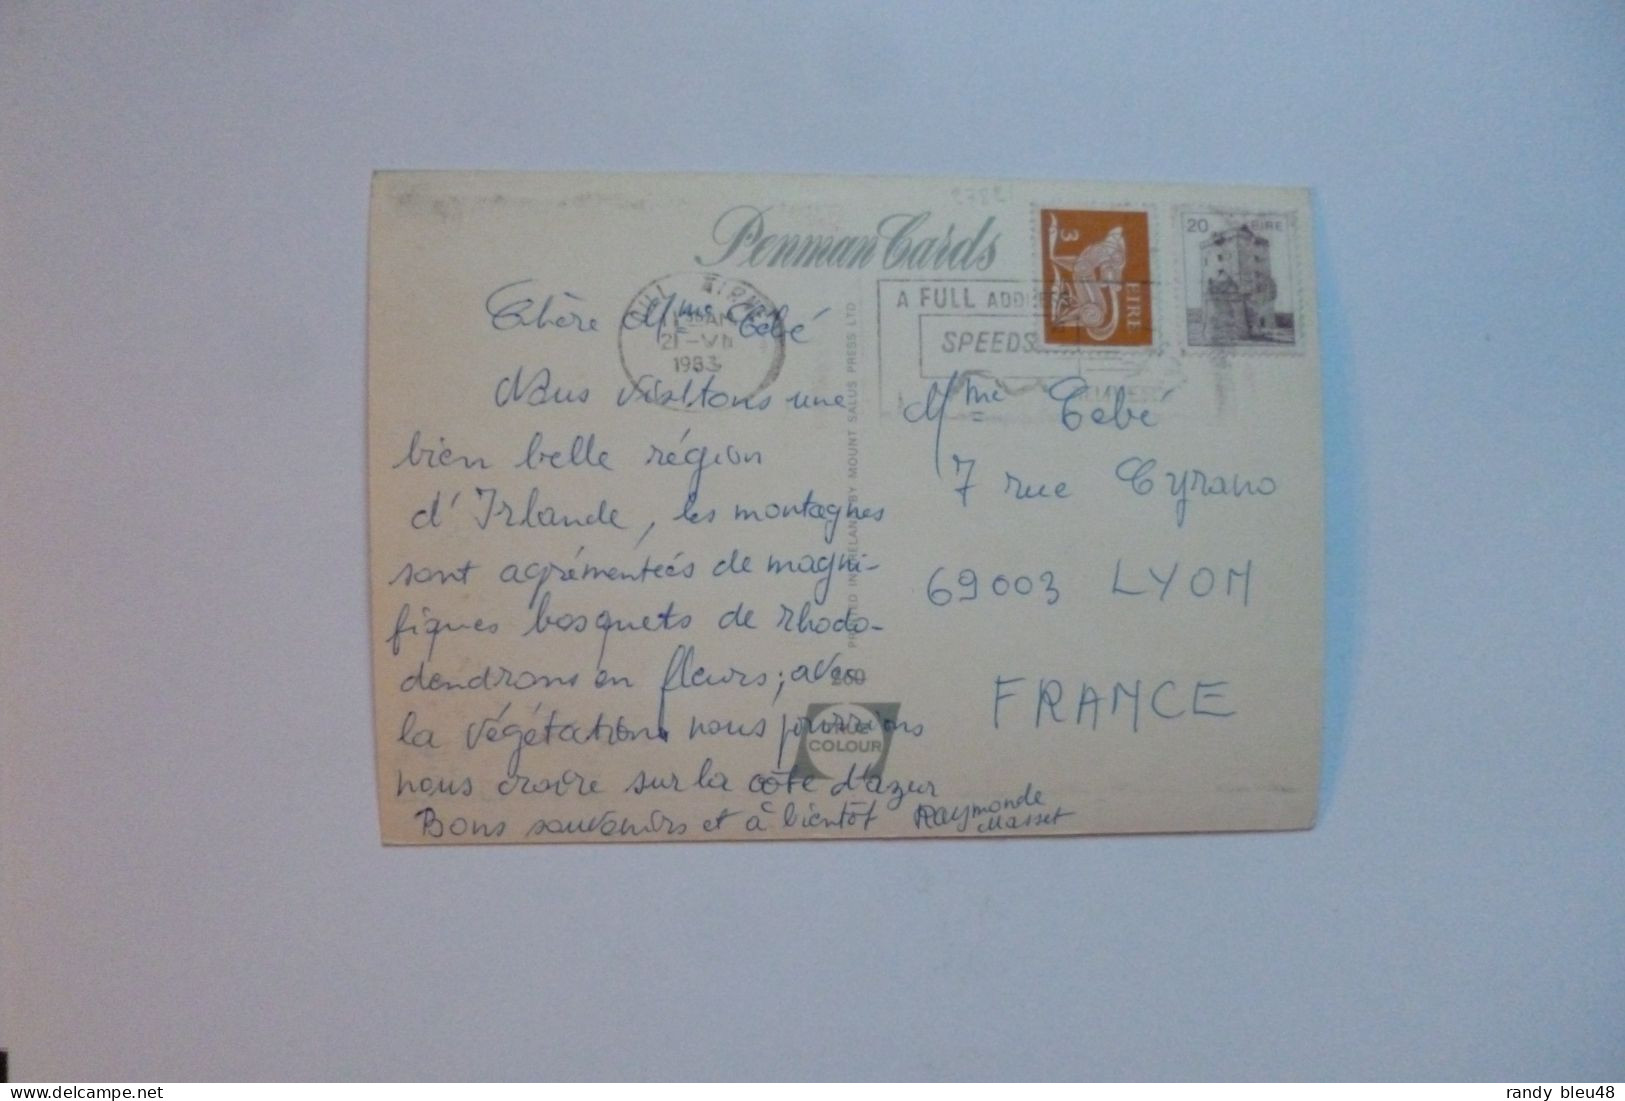 Penman Cards
3
EIRE
20 EIRE
1983
A FULL ADDRESS
SPEEDS
Chère Mme Cebé
Nous visitons une
bien belle région
d'Irlande, les montagnes
sont agrémentées de magni-
fiques bosquets de rhodo-
dendrons en fleurs; avec
la végétation nous pourrions
nous croire sur la côte d'azur
Bons souvenirs et à bientôt Raymonde
Masset
PRINTED IN IRELAND BY MOUNT SALUS PRESS LTD
260
TRUE
COLOUR
Mme Cebé
7 rue Cyrano
69003 LYON
FRANCE
randy bleu48